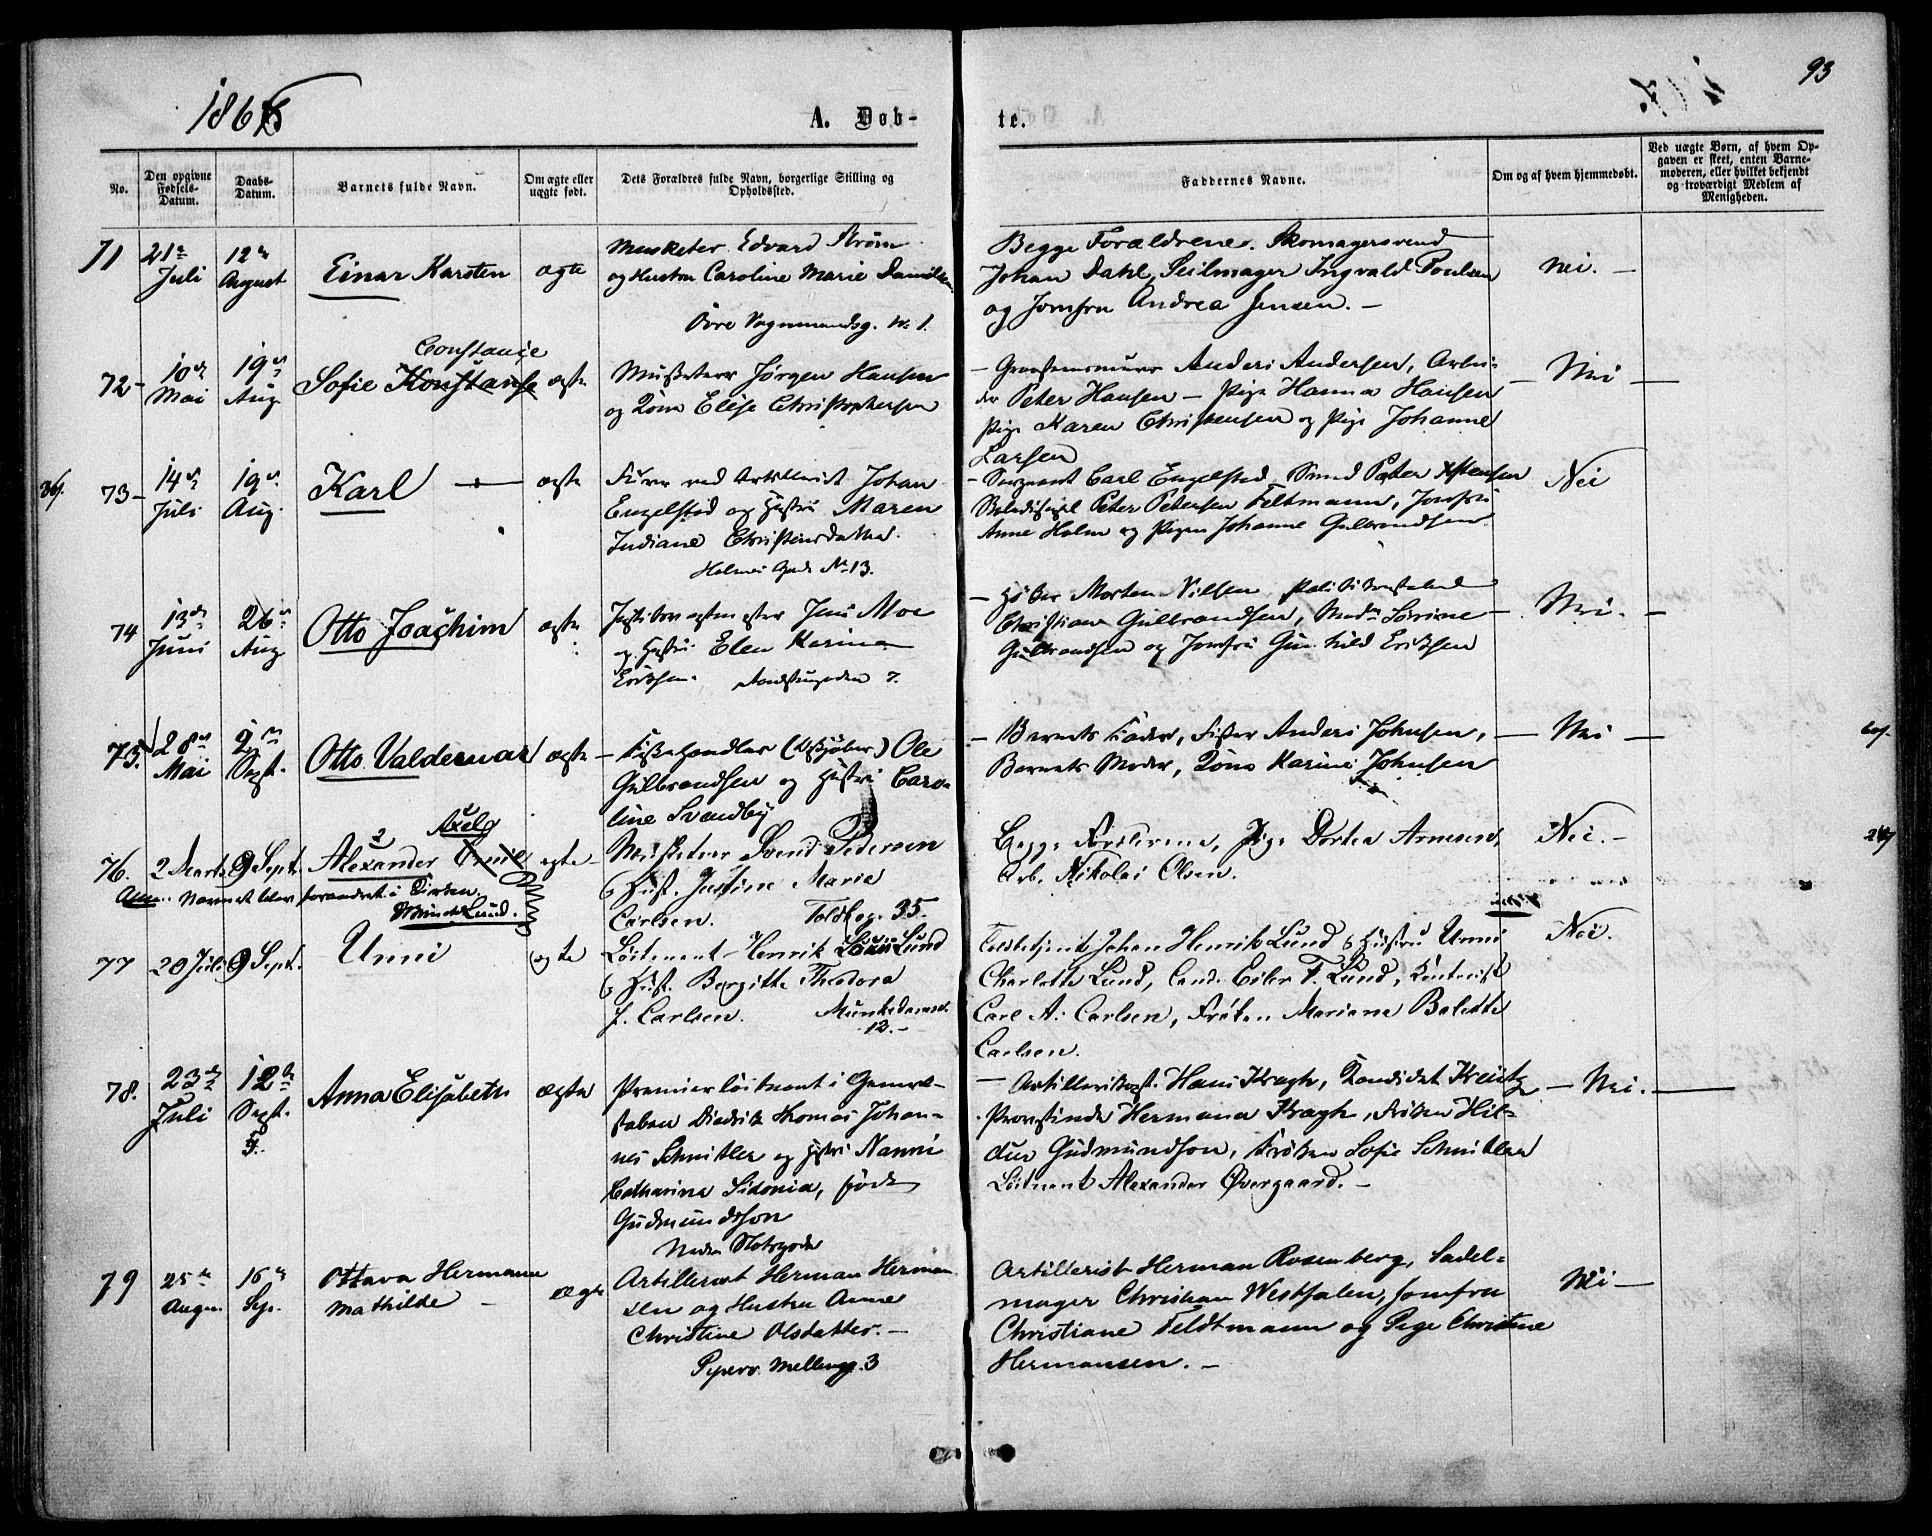 93
1866
A. Døb-
te.
No.
Den opgivne Fødsels-Datum.
Daabs-Datum.
Barnets fulde Navn.
Om ægte eller uægte født.
Dets Forældres fulde Navn, borgerlige Stilling og Opholdssted.
Faddernes Navne.
Om og af hvem hjemmedøbt.
Ved uægte Børn, af hvem Opgaven er skeet, enten Barnemoderen, eller hvilket bekjendt og troværdigt Medlem af Menigheden.
71
21de Juli
12te August
Einar Karsten
ægte
Musketer Edvard Strøm
og Hustru Caroline Marie Danielsen
Øvre Vognmandsg. No 1.
Begge Forældrene. Skomagersvend
Johan Dahl, Seilmager Ingvald Poulsen
og Jomfru Andrea Jensen. —
nei. —
72 -
10de Mai
19de Aug
Constance
Sofie Konstanse
ægte
Musketeer Jørgen Hansen
og Kone Elise Christophersen
- Graastensmurer Anders Andersen, Arbei-
der Peter Hansen - Pige Hanna Hansen
Pige Karen Christensen og Pige Johanne
Larsen
- Nei -
73 -
14de Juli
19de Aug.
Karl
ægte
Furer ved Artilleriet Johan
Engelstad og Hustru Maren
Indiane Christensdatter.
Holmens Gade No 13.
- Sergeant Carl Engelstad, Smed Peter
Peter Petersen Feltmann, Jomfru
Anne Holm og Pigen Johanne Gulbrandsen.
Nei
74
13de Juni
26de Aug
Otto Joachim
ægte
Jens Moe
og Hustru Elen Karine
Eriksen. 7.
- Morten Nilsen
Christian Gulbrandsen, Mad. Sørine
Gulbrandsen og Jomfru Gunhild Eriksen
- Nei. -
75.
28de Mai
2den Sept.
Otto Valdemar
ægte -
Fiskehandler Ole
Gulbrandsen og Hustru Caro-
line Svendby
- Barnets Fader, Fisker Anders Johnsen,
Barnets Moder, Kone Karine Johnsen
- Nei -
76.
2 Marts
9 Sept.
Axel
Alexander Emil
ægte -
Musketeer Svend Pedersen
og Hust. Justine Marie
Carlsen. Toldbg. 35.
Begge Forældrene, Pige Dorthea Arnesen,
Arb. Nikolai Olsen.
Nei. -
Anm. Navnet blev forandret i Kirken.
77
20 Juli
9 Sept.
Lund.
Unni
ægte
Løitenant Henrik Louis Lund
og Hust. Bergitte Theodora
f. Carlsen. Munkedamsv.
12. -
Toldbetjent Johan Henrik Lund og Hustru Unni
Charlotte Lund, Cand. Eiler F. Lund, Kontorist
Carl A. Carlsen, Frøken Mariane Bolette
Carlsen.
Nei.
78.
23de Juli
12te Sept.
Anna Elisabeth
ægte
Premierløitnant i General-
staben Diedrik Thomas Johan-
nes Schnitler og Hustru Nanni
Catharina Sidonia, født
Gudmundson
Nedre Slotsgade
- Hans Kragh, Kandidat Kreütz,
Provstinde Hermana Kragh, Frøken Hil-
dur Gudmundson, Frøken Sofie Schnitler
Løitnant Alexander Øvergaard. -
- Nei. -
79
25de August
16de Sep.
Ottava Hermann
Mathilde -
ægte
Artillerist Herman Herman-
sen og Hustru Anne
Christine Olsdatter. -
Piperv. Mellemg. 3
Artillerist Herman Rosenberg, Sadel-
mager Christian Westfalen, Jomfru
Christiane Feldtmann og Pige Christine
Hermansen. -
Nei -